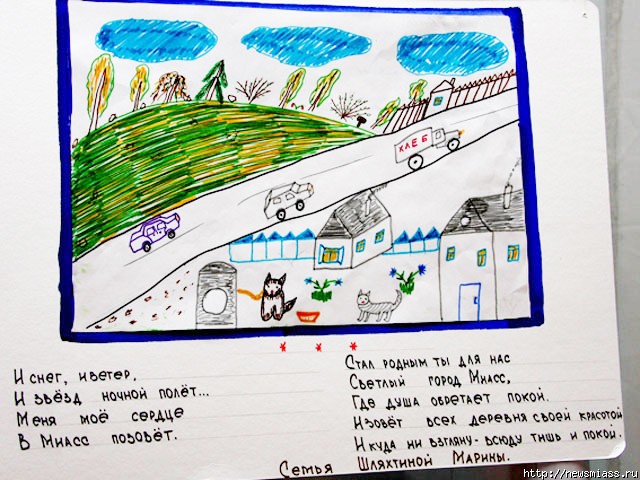 ХЛЕБ
* * *
И снег, и ветер,
И звёзд ночной полёт...
Меня моё сердце
В Миасс позовёт.
Стал родным ты для нас
Светлый город Миасс,
Где душа обретает покой.
И зовёт всех деревня своей красотой
И куда ни взгляну - всюду тишь и покой.
Семья Шляхтиной Марины.
http://newsmiass.ru